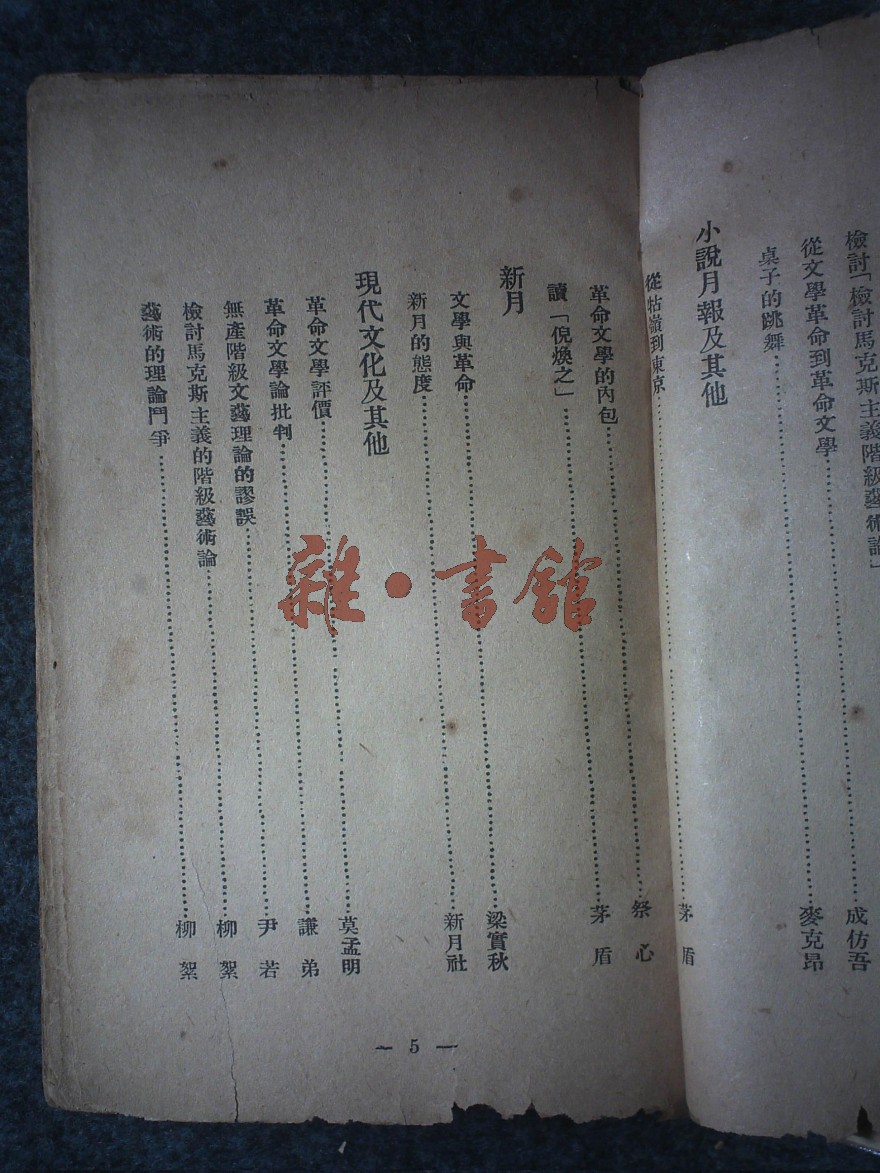 檢討「檢討馬克斯主義階級藝術論」
從文學革命到革命文學……成仿吾
桌子的跳舞……麥克昂
小說月報及其他
從牯嶺到東京……茅盾
革命文學的內包……祭心
讀「倪煥之」……茅盾
新月
文學與革命……梁實秋
新月的態度……新月社
現代文化及其他
革命文學評價……莫孟明
革命文學論批判……謙弟
無產階級文藝理論的謬誤……尹若
檢討馬克斯主義的階級藝術論……柳絮
藝術的理論鬥爭……柳絮
— 5 —
雜·書館